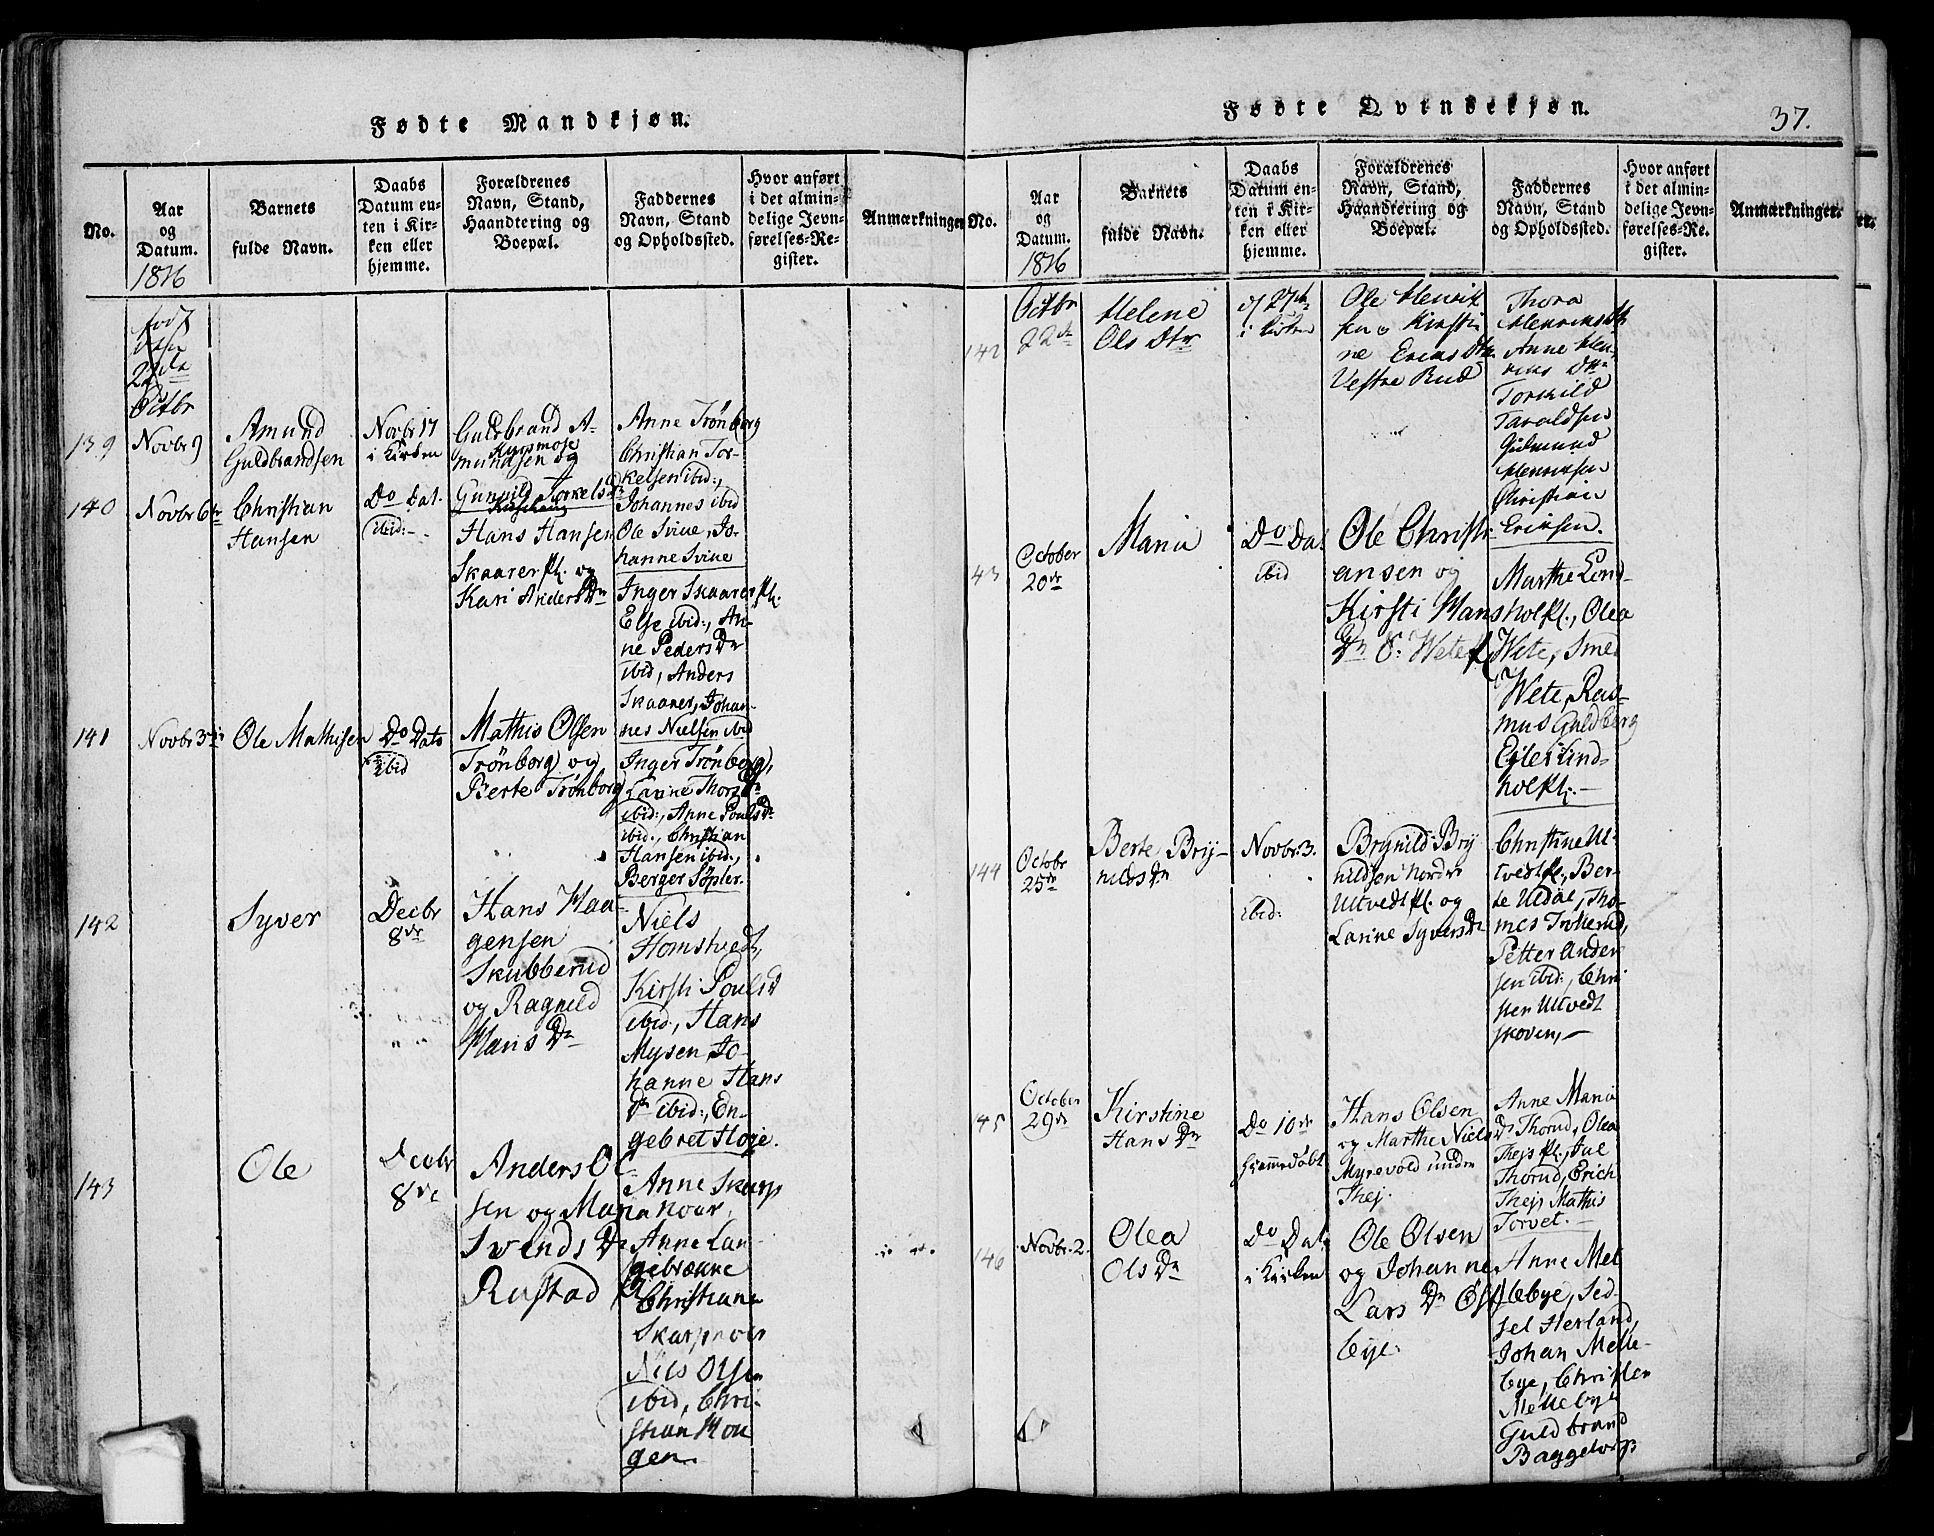 Fødte Mandkjøn.
No.
Aar
og
Datum.
1816
Barnets
fulde Navn.
Daabs
Datum en-
ten i Kir-
ken eller
hjemme.
Forældrenes
Navn, Stand,
Haandtering og
Boepæl.
Faddernes
Navn, Stand
og Opholdssted.
Hvor anført
i det almin-
delige Jevn-
førelses-Re-
gister.
Anmærkninger
22de
Octbr
139
Novbr 9
Amund
Guldbrandsen
Novbr 17
i Kirken
Guldbrand A-
mundsen og
Gunnild Torkels Dr
Anne Trönborg
Christian Tor-
kelsen ibid:,
Johannes ibid
Ole Svine, Jo-
hanne Svine
140
Novbr 6te
Christian
Hansen
Do Dat.
ibid:
Hans Hansen
Skaarer og
Kari Anders Dr
Inger Skaarer
Else ibid:, An-
ne Peders Dr
ibid, Anders
Skaarer, Johan-
nes Nielsen ibid
141
Novbr 3die
Ole Mathisen
Do Dato
ibid
Mathis Olsen
Trönborg og
Berte Trönborg
Inger Trönborg,
Larine Thors Dr
ibid:, Anne Pouls Dr
ibid:, Christian
Hansen ibid:,
Berger Söpler.
142
Syver
Decbr
8de
Hans Haa-
gensen
Skubberud
og Ragnild
Hans Dr
Niels
Homstvedt,
Kirsti Pouls D
ibid:, Hans
Mysen, Jo-
hanne Hans
Dr ibid:, En-
gebret Hoje.
143
Ole
Decbr
8de
Anders Ol-
sen og Maria
Svends Dr
Rustad
Anne Skarp
noar,
Anne Lan-
gebrænne
Christiane
Skarpnoer
Niels Olsen
ibid, Chri-
stian Hou
gen.
Fødte Qvindekjøn.
37.
No.
Aar
og
Datum.
1816
Barnets
fulde Navn.
Daabs
Datum en-
ten i Kir-
ken eller
hjemme.
Forældrenes
Navn, Stand,
Haandtering og
Boepæl.
Faddernes
Navn, Stand
og Opholdssted.
Hvor anført
i det almin-
delige Jevn-
førelses-Re-
gister.
Anmærkninger.
142
Octbr
22de
Helene
Ols Dtr
27de
i Kirken
Ole Henrik
sen og Kirsti
ne Erics Dtr
Vestre Rud
Thora
Henriks Dtr
Anne Hen-
riks Dtr
Torkild
Taraldsen
Gudmund
Henriksen
Christian
Eriksen.
43
October
20de
Maria
Do Dat
ibid
Ole Christi
ansen og
Kirsti Hans
Dr Ö: Wete
Marthe Lind-
hol, Olea
Wete, Smed
Wete, Ras-
mus Guldberg
Ejler Lind-
hol.
144
Octobr
25de
Berte Bry-
nilds Dr
Novbr 3.
ibid:
Brynild Bry
nildsen Nordre
Utvedt og
Larine Syvers Dr
Christine Ut
tvedt, Ber-
te Udal, Tho-
mes Trollerud,
Petter Ander
sen ibid:, Chri
sten Utvedt
skoven,
45
October
29de
Kirstine
Hans Dr
Do 10de
hiemmedöbt
Hans Olsen
og Marthe Niels
Myrevold under
Thej.
Anne Maria
Dr Thorud, Olea
Thejs, Jul
Thorud, Erich
Thejs Mathis
Torvet.
146
Novbr 2.
Olea
Ols Dr
Do Dat
i Kirken
Ole Olsen
og Johanne
Lars Dr Öst
bye.
Anne Mel
lebye, Sid-
sel Herland,
Johan Melle-
bye, Christen
Mellebye
Guldbrand
Baggetorp